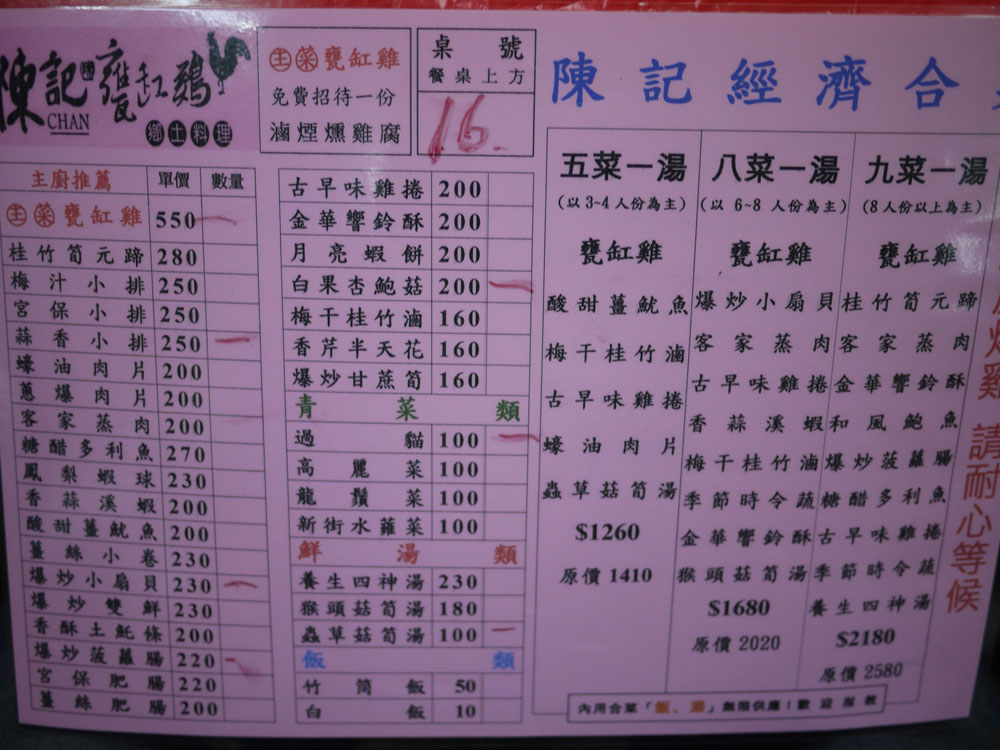 陳記甕缸鷄
CHAN
鄉土料理
主菜甕缸雞
免費招待一份
滷煙燻雞腐
桌號
餐桌上方
16.
陳記經濟合
主廚推薦 單價 數量
主菜甕缸雞 550
桂竹筍元蹄 280
梅汁小排 250
宮保小排 250
蒜香小排 250
蠔油肉片 200
蔥爆肉片 200
客家蒸肉 200
糖醋多利魚 270
鳳梨蝦球 230
香蒜溪蝦 200
酸甜薑魷魚 200
薑絲小卷 230
爆炒小扇貝 230
爆炒雙鮮 230
香酥土魠條 200
爆炒菠蘿腸 220
宮保肥腸 220
薑絲肥腸 200
古早味雞捲 200
金華響鈴酥 200
月亮蝦餅 200
白果杏鮑菇 200
梅干桂竹滷 160
香芹半天花 160
爆炒甘蔗筍 160
青菜類
過貓 100
高麗菜 100
龍鬚菜 100
新街水蓮菜 100
鮮湯類
養生四神湯 230
猴頭菇筍湯 180
蟲草菇筍湯 100
飯類
竹筒飯 50
白飯 10
五菜一湯
(以3~4人份為主)
甕缸雞
酸甜薑魷魚
梅干桂竹滷
古早味雞捲
蠔油肉片
蟲草菇筍湯
$1260
原價1410
八菜一湯
(以6~8人份為主)
甕缸雞
爆炒小扇貝
客家蒸肉
古早味雞捲
香蒜溪蝦
梅干桂竹滷
季節時令蔬
金華響鈴酥
猴頭菇筍湯
$1680
原價2020
九菜一湯
(8人份以上為主)
甕缸雞
桂竹筍元蹄
客家蒸肉
金華響鈴酥
和風鮑魚
爆炒菠蘿腸
糖醋多利魚
古早味雞捲
季節時令蔬
養生四神湯
$2180
原價2580
雞 請耐心等候
內用合菜「飯、湯」無限供應！歡迎指教